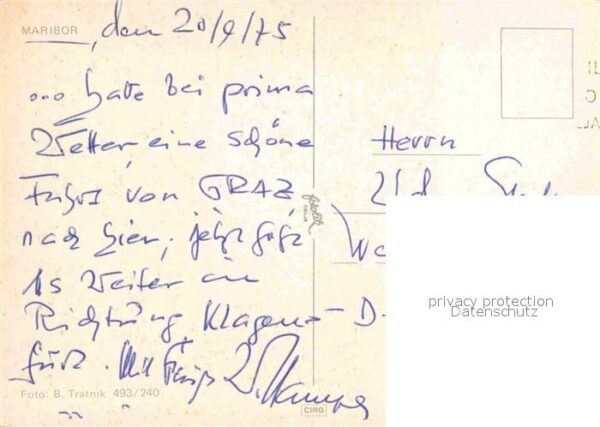 MARIBOR, den 20/9/75
... hatte bei prima
Wetter, eine schöne
Fahrt von GRAZ
nach hier, jetzt geht
es weiter in
Richtung Klagen-
furt. Mit Gruß
Foto: B. Tratnik 493/240
CIRG
Herrn
privacy protection
Datenschutz